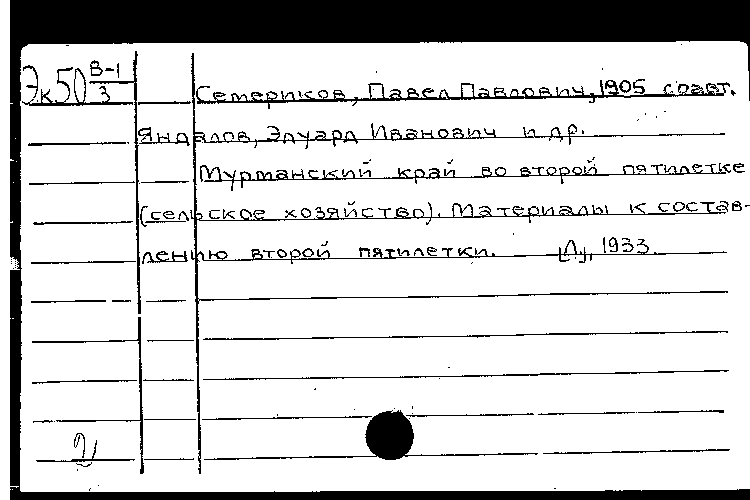 Эк50 В-1/3
Семериков, Павел Павлович, 1905 соавт.
Яндалов, Эдуард Иванович и др.
Мурманский край во второй пятилетке
(сельское хозяйство). Материалы к состав-
лению второй пятилетки. [Л], 1933.